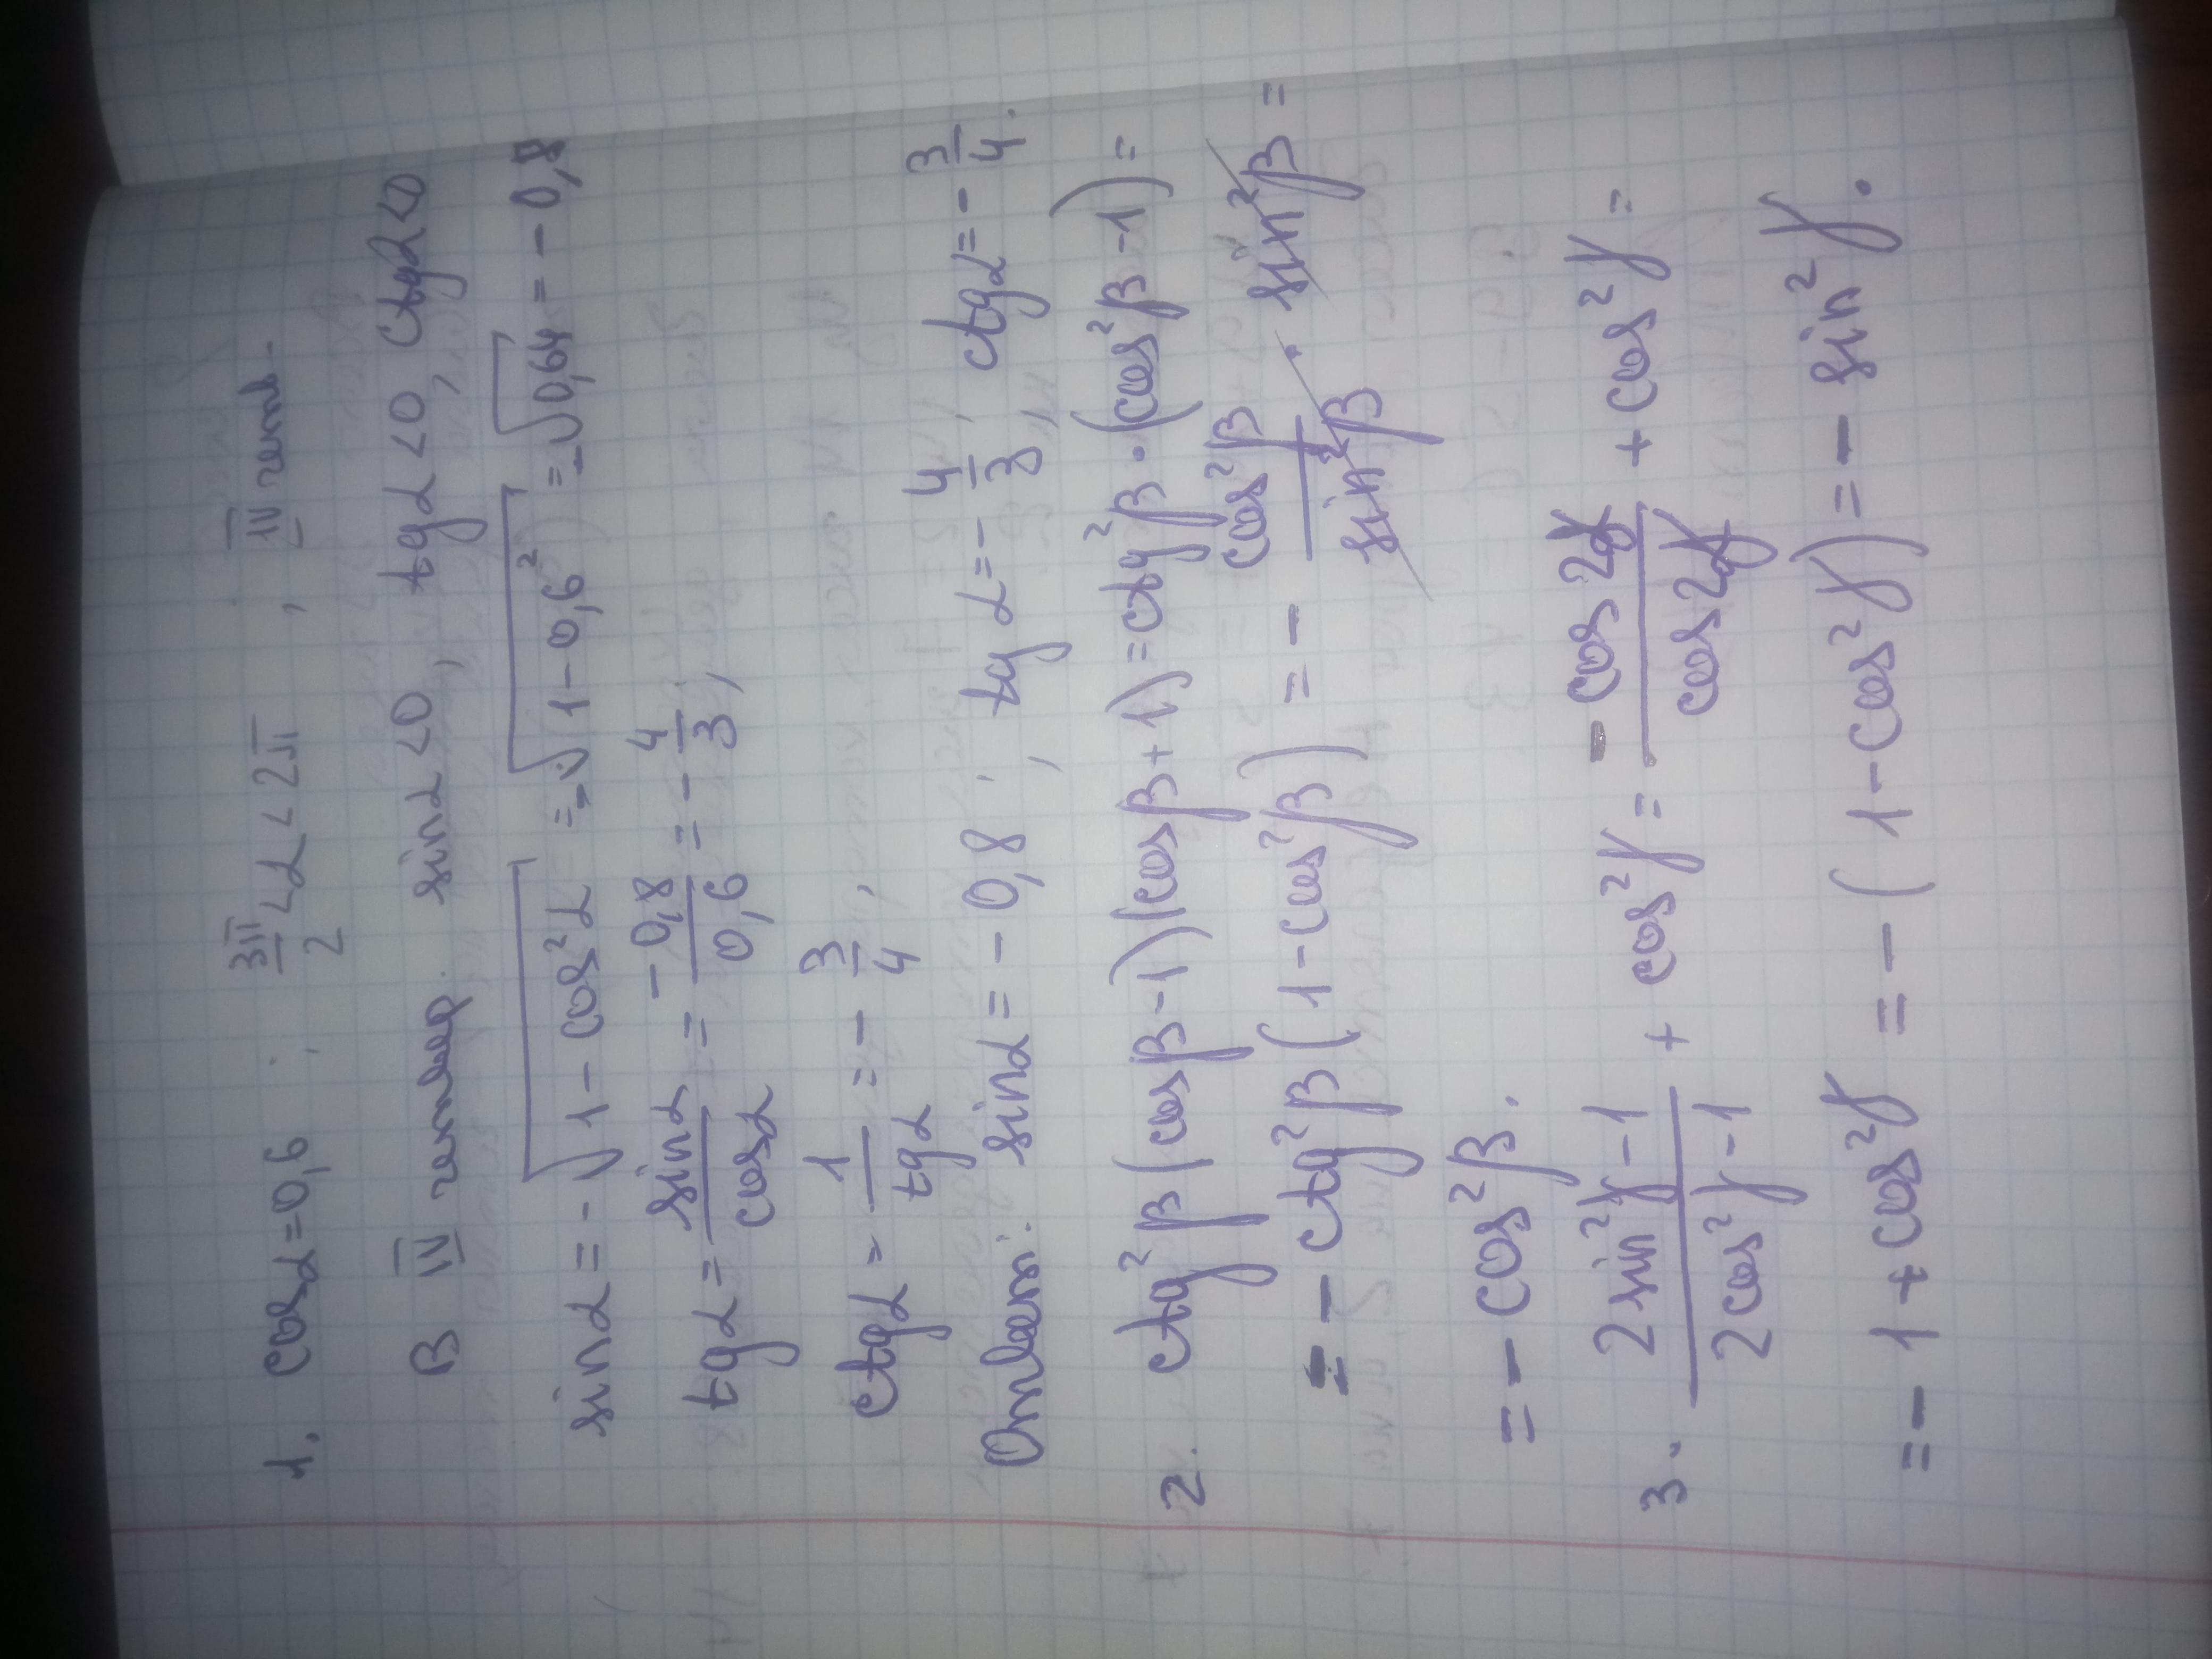 1. cosα=0,6 ; 3π/2 <α<2π , IV четв.
В IV четвер. sinα<0, tgα<0, ctgα<0
sinα=-√(1-cos²α) =-√(1-0,6²) =-√0,64 = -0,8
tgα= sinα/cosα = -0,8/0,6 = -4/3,
ctgα = 1/tgα = -3/4,
Ответ: sinα = -0,8 ; tgα=-4/3, ctgα=-3/4.
2. ctg²β(cosβ-1)(cosβ+1)=ctg²β·(cos²β-1)=
= -ctg²β(1-cos²β) = - cos²β/sin²β · sin²β =
= -cos²β.
3. (2sin²γ-1)/(2cos²γ-1) + cos²γ = -cos2γ/cos2γ +cos²γ =
= -1+cos²γ = -(1-cos²γ) = -sin²γ.